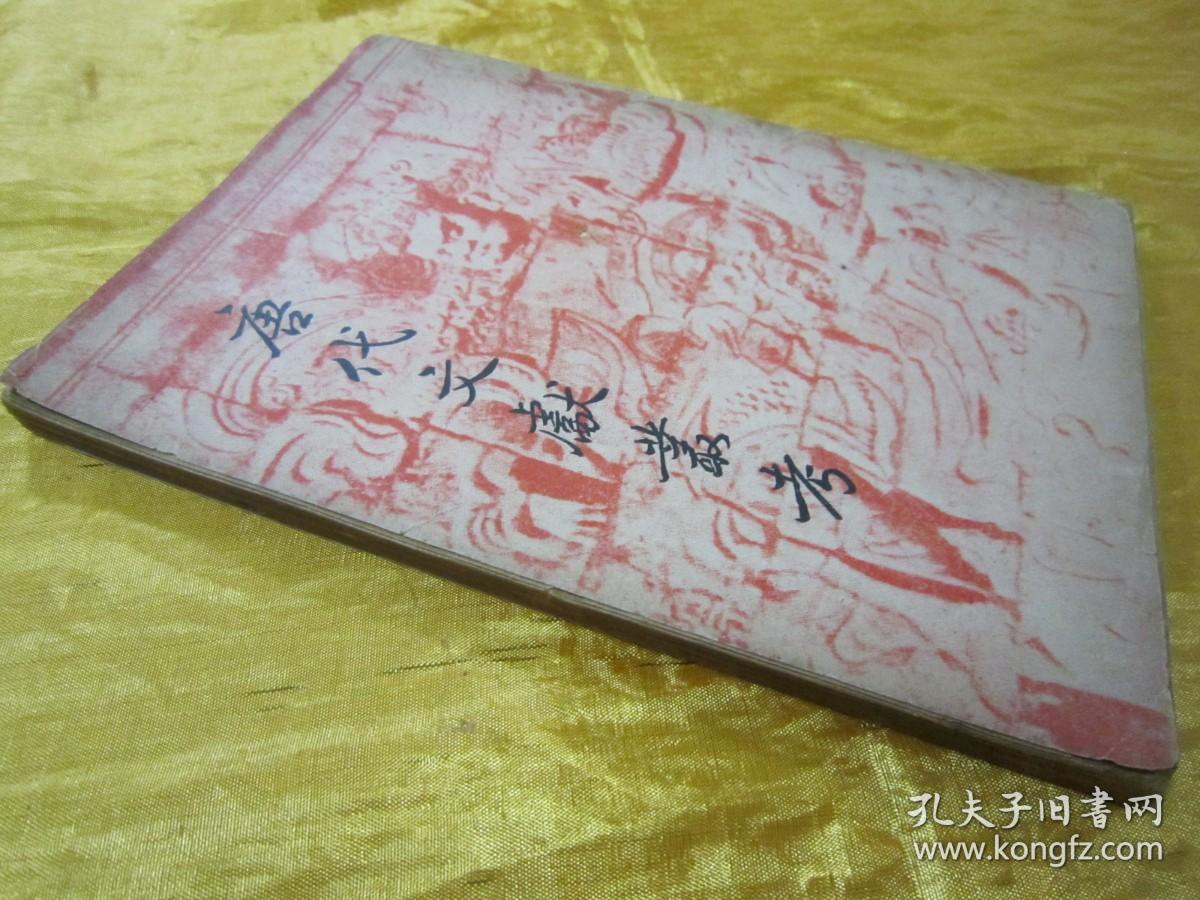 唐代文獻叢考
孔夫子旧书网
www.kongfz.com